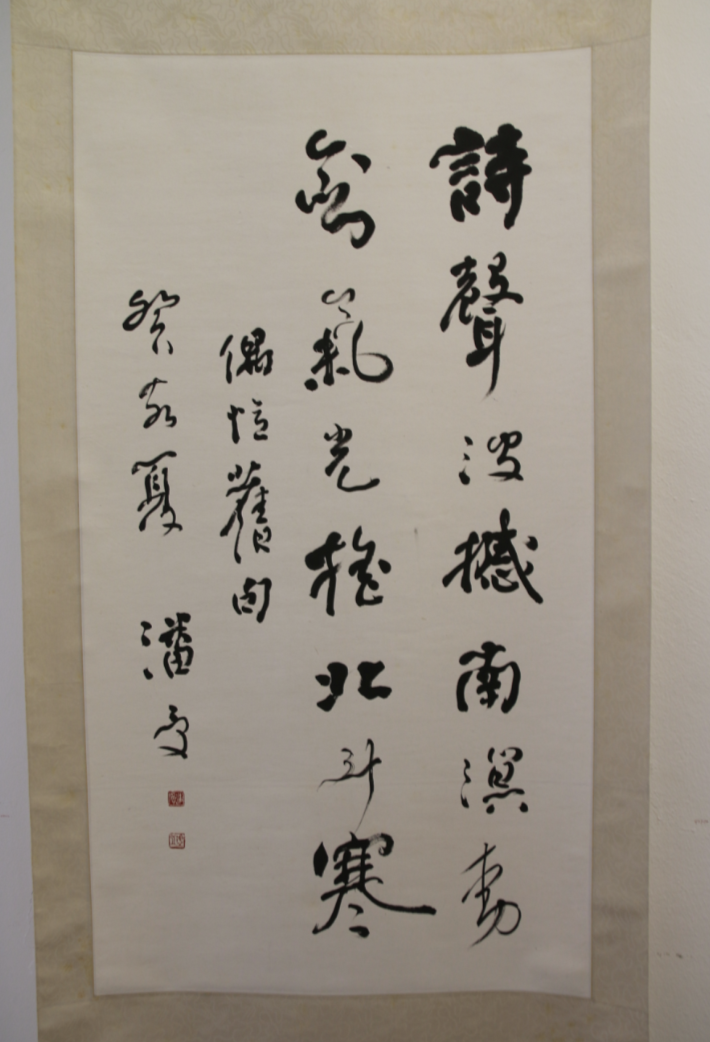 詩聲波撼南溟動
劍氣光搖北斗寒
偶憶舊句
癸亥夏 潘受